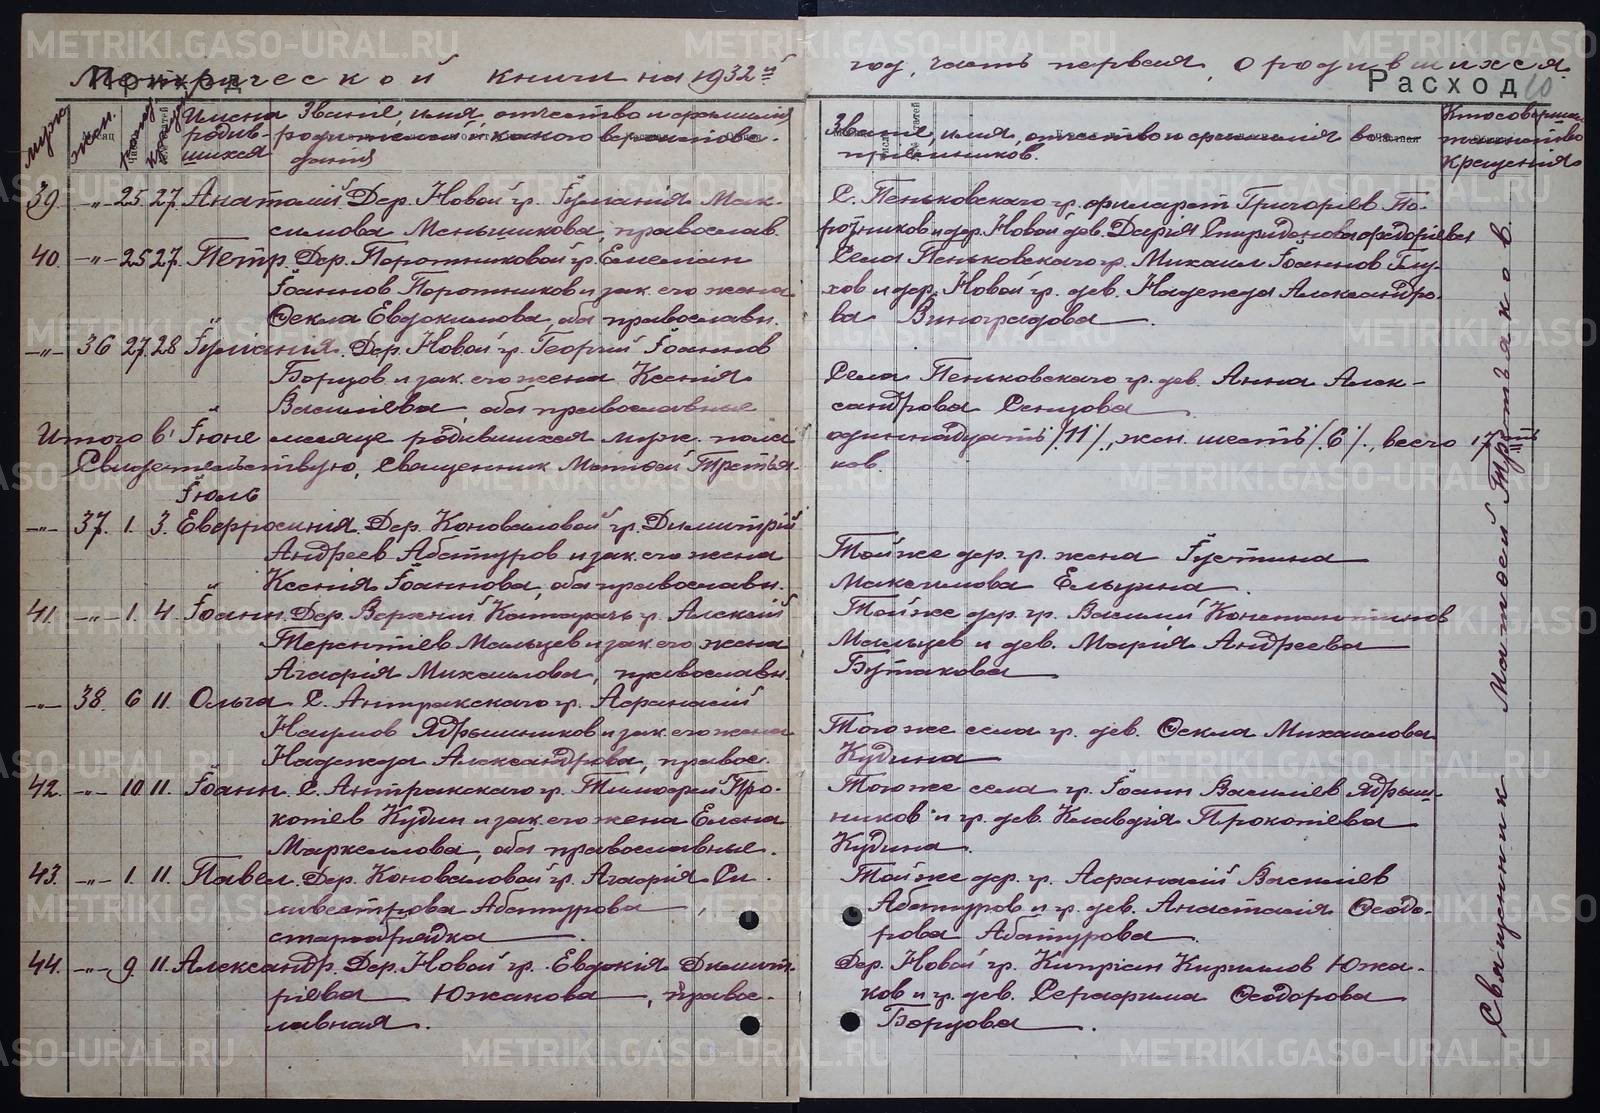 Метрической книги на 1932й год, часть первая, о родившихся.
Приход
Расход
10
муж.
жен.
Имена родив-
шихся
Звание, имя, отчество и фамилия
родителей, какого вероиспове-
дания
Звание, имя, отчество и фамилия вос-
приемников.
Кто совершал
таинство
Крещения
39. -"- 25 27. Анатолий. Дер. Новой гр. Іуліанія Мак-
симова Меньшикова, православ.
С. Пеньковскаго гр. Филарет Григоріев По-
ротников и дер. Новой дев. Дарія Спиридонова
40. -"- 25 27. Петр. Дер. Поротниковой гр. Емелиан
Іоаннов Поротников и зак. его жена
Ѳекла Евдокимова, оба православн.
Села Пеньковскаго гр. Михаил Іоаннов Глу-
хов и дер. Новой гр. дев. Надежда Александро-
ва Виноградова
-"- 36 27. 28 Іуліанія. Дер. Новой гр. Георгий Іоаннов
Борцов и зак. его жена Ксенія
Василіева, оба православные
Села Пеньковскаго гр. дев. Анна Алек-
сандрова Сенцова
Итого в Іюне месяце родившихся муж. пола одиннадцать /11/, жен. шесть /6/, всего 17ть
Свидетельствую, Священник Матфей Третья-
ков.
Іюль
-"- 37. 1. 3. Евфросинія. Дер. Коноваловой гр. Димитрій
Андреев Абатуров и зак. его жена
Ксенія Іоаннова, оба православн.
Той же дер. гр. жена Іустина
Максимова Ельцина
41. -"- 1. 4. Іоанн. Дер. Верхний Катарач гр. Алексей
Терентіев Мальцев и зак. его жена
Агафія Михаилова, православн.
Той же дер. гр. Василий Константинов
Мальцев и дев. Марія Андреева
Бутакова
-"- 38. 6 11. Ольга С. Антракскаго гр. Афанасій
Наумов Ядрышников и зак. его жена
Надежда Александрова, правос.
Того же села гр. дев. Ѳекла Михаилова
Кудина
42. -"- 10 11. Іоанн. С. Антракскаго гр. Тимофей Про-
копіев Кудин и зак. его жена Елена
Маркеллова, оба православные.
Того же села гр. Іоанн Василіев Ядрыш-
ников и гр. дев. Клавдія Прокопіева
Кудина.
43. -"- 1. 11. Павел. Дер. Коноваловой гр. Агафія Си-
ливестрова Абатурова,
старообрядка.
Той же дер. гр. Афанасій Василіев
Абатуров и гр. дев. Анастасія Ѳеодо-
рова Абатурова.
44. -"- 9. 11. Александр. Дер. Новой гр. Евдокія Димит-
ріева Южакова, правос-
лавная.
Дер. Новой гр. Кипріан Кириллов Южа-
ков и гр. дев. Серафима Ѳеодорова
Борцова.
Священник Матфей Третьяков.
METRIKI.GASO-URAL.RU